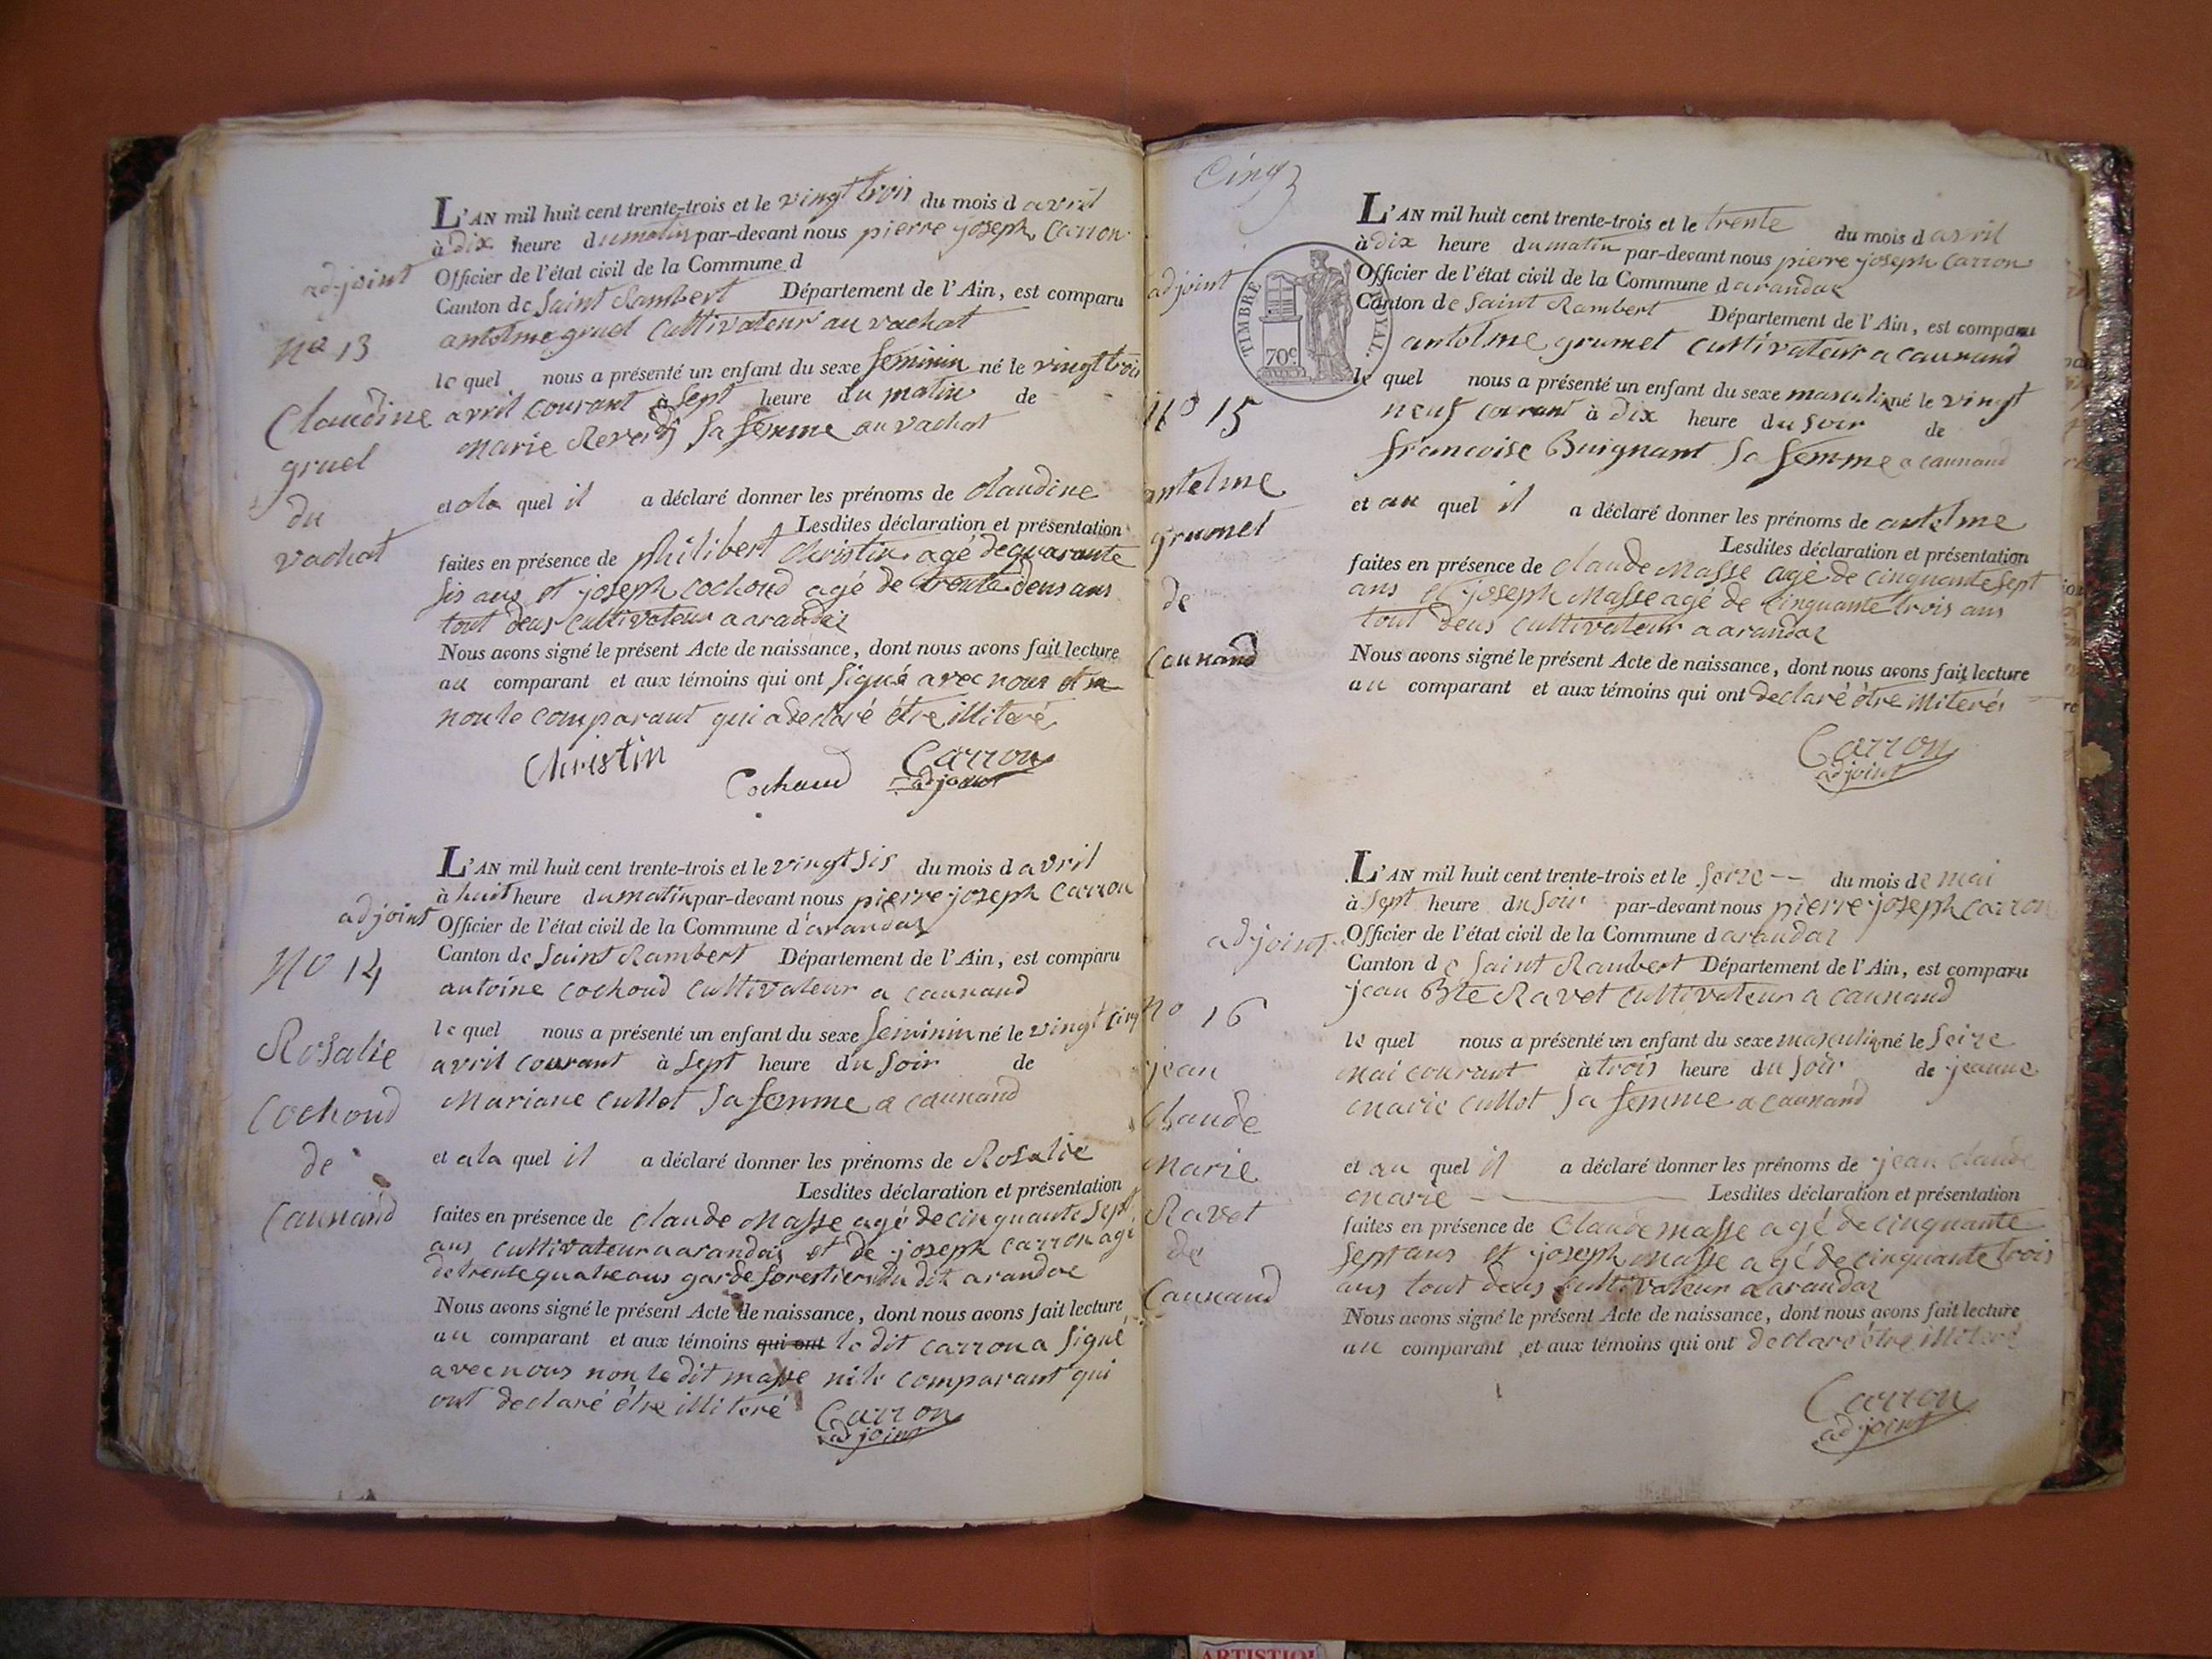 L'AN mil huit cent trente-trois et le vingt trois du mois d avril
à dix heure du matin par-devant nous pierre joseph Carron
adjoint Officier de l'état civil de la Commune d
Canton de Saint Rambert Département de l'Ain, est comparu
No 13
antelme gruel cultivateur au vachat
le quel nous a présenté un enfant du sexe feminin né le vingt trois
Claudine
avril courant à sept heure du matin de
gruel
marie sa femme au vachat
du
vachat
et a la quel il a déclaré donner les prénoms de claudine
Lesdites déclaration et présentation
faites en présence de philibert christin agé de quarante
sis ans et joseph cochoud agé de trente deus ans
tout deus cultivateur a arandaz
Nous avons signé le présent Acte de naissance, dont nous avons fait lecture
au comparant et aux témoins qui ont signé avec nous
non le comparant qui a declaré étre illiteré
Christin
Cochaud
Carron
adjoint
L'AN mil huit cent trente-trois et le vingt sis du mois d avril
à huit heure du matin par-devant nous pierre joseph Carron
adjoint Officier de l'état civil de la Commune d'arandaz
No 14
Canton de Saint Rambert Département de l'Ain, est comparu
antoine cochoud cultivateur a caunand
le quel nous a présenté un enfant du sexe feminin né le vingt cinq
Rosalie
avril courant à sept heure du soir de
Cochoud
Mariane cullet sa femme a caunand
de
Caunand
et a la quel il a déclaré donner les prénoms de Rosalie
Lesdites déclaration et présentation
faites en présence de claude Masse agé de cinquante sept
ans cultivateur a arandaz et de joseph carron agé
de trente quatre ans garde forestier du dit arandaz
Nous avons signé le présent Acte de naissance, dont nous avons fait lecture
au comparant et aux témoins qui ont le dit carron a signé
avec nous non le dit masse ni le comparant qui
ont declaré étre illiteré
Carron
adjoint
Cinq
L'AN mil huit cent trente-trois et le trente du mois d avril
à dix heure du matin par-devant nous pierre joseph Carron
adjoint Officier de l'état civil de la Commune d arandaz
Canton de Saint Rambert Département de l'Ain, est comparu
TIMBRE ROYAL.
70c
antelme grumet cultivateur a caunand
le quel nous a présenté un enfant du sexe masculin né le vingt
No 15
neuf courant à dix heure du soir de
francoise Buignant sa femme a caunand
antelme
grumet
de
Caunand
et au quel il a déclaré donner les prénoms de antelme
Lesdites déclaration et présentation
faites en présence de claude Masse agé de cinquante sept
ans et joseph Masse agé de cinquante trois ans
tout deus cultivateur a arandaz
Nous avons signé le présent Acte de naissance, dont nous avons fait lecture
au comparant et aux témoins qui ont declaré étre illiterés
Carron
adjoint
L'AN mil huit cent trente-trois et le seize du mois de mai
à sept heure du soir par-devant nous pierre joseph carron
adjoint Officier de l'état civil de la Commune d arandaz
Canton de Saint Rambert Département de l'Ain, est comparu
jean Bte Ravet cultivateur a caunand
No 16
le quel nous a présenté un enfant du sexe masculin né le seize
mai courant à trois heure du soir de jeanne
marie cullet sa femme a caunand
jean
Claude
Marie
Ravet
de
Caunand
et au quel il a déclaré donner les prénoms de jean claude
marie Lesdites déclaration et présentation
faites en présence de Claude masse agé de cinquante
sept ans et joseph Masse agé de cinquante trois
ans tout deus cultivateur a arandaz
Nous avons signé le présent Acte de naissance, dont nous avons fait lecture
au comparant et aux témoins qui ont declaré étre illiteré
Carron
adjoint